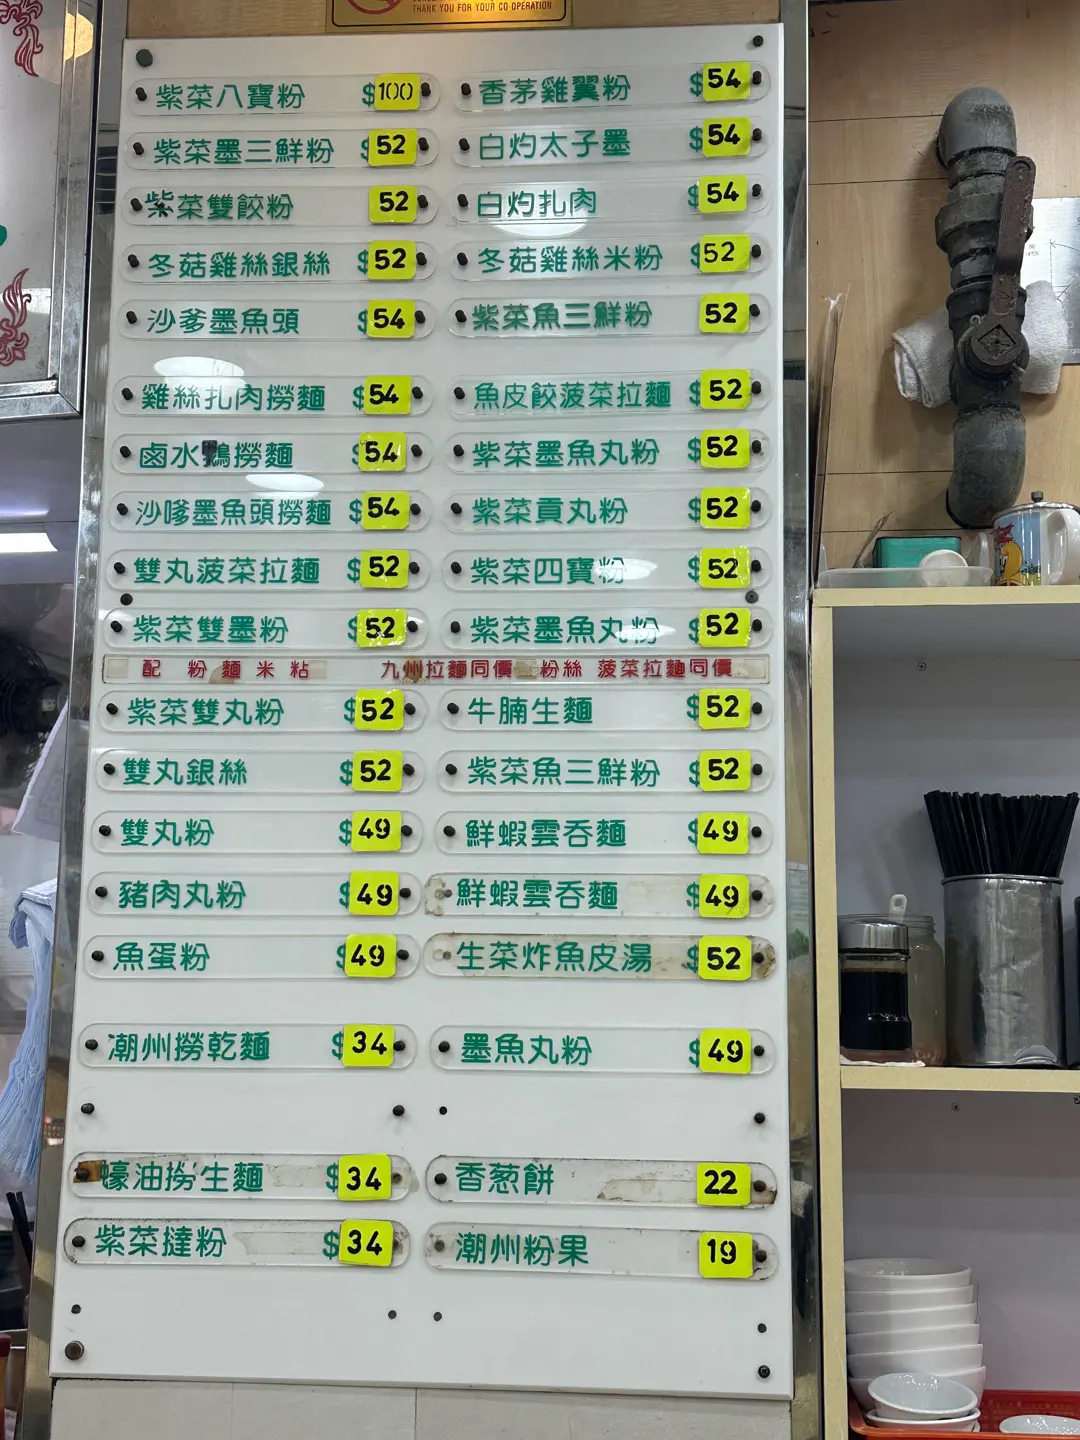 THANK YOU FOR YOUR CO OPERATION
紫菜八寶粉 $100
紫菜墨三鮮粉 $52
紫菜雙餃粉 52
冬菇雞絲銀絲 $52
沙爹墨魚頭 $54
雞絲扎肉撈麵 $54
鹵水鵝撈麵 $54
沙嗲墨魚頭撈麵 $54
雙丸菠菜拉麵 $52
紫菜雙墨粉 $52
香茅雞翼粉 $54
白灼太子墨 $54
白灼扎肉 $54
冬菇雞絲米粉 $52
紫菜魚三鮮粉 52
魚皮餃菠菜拉麵 $52
紫菜墨魚丸粉 $52
紫菜貢丸粉 $52
紫菜四寶粉 $52
紫菜墨魚丸粉 $52
配 粉 麵 米 粘 九州拉麵同價 粉絲 菠菜拉麵同價
紫菜雙丸粉 $52
雙丸銀絲 $52
雙丸粉 $49
豬肉丸粉 $49
魚蛋粉 $49
潮州撈乾麵 $34
蠔油撈生麵 $34
紫菜撻粉 $34
牛腩生麵 $52
紫菜魚三鮮粉 $52
鮮蝦雲吞麵 $49
鮮蝦雲吞麵 $49
生菜炸魚皮湯 $52
墨魚丸粉 $49
香葱餅 22
潮州粉果 19